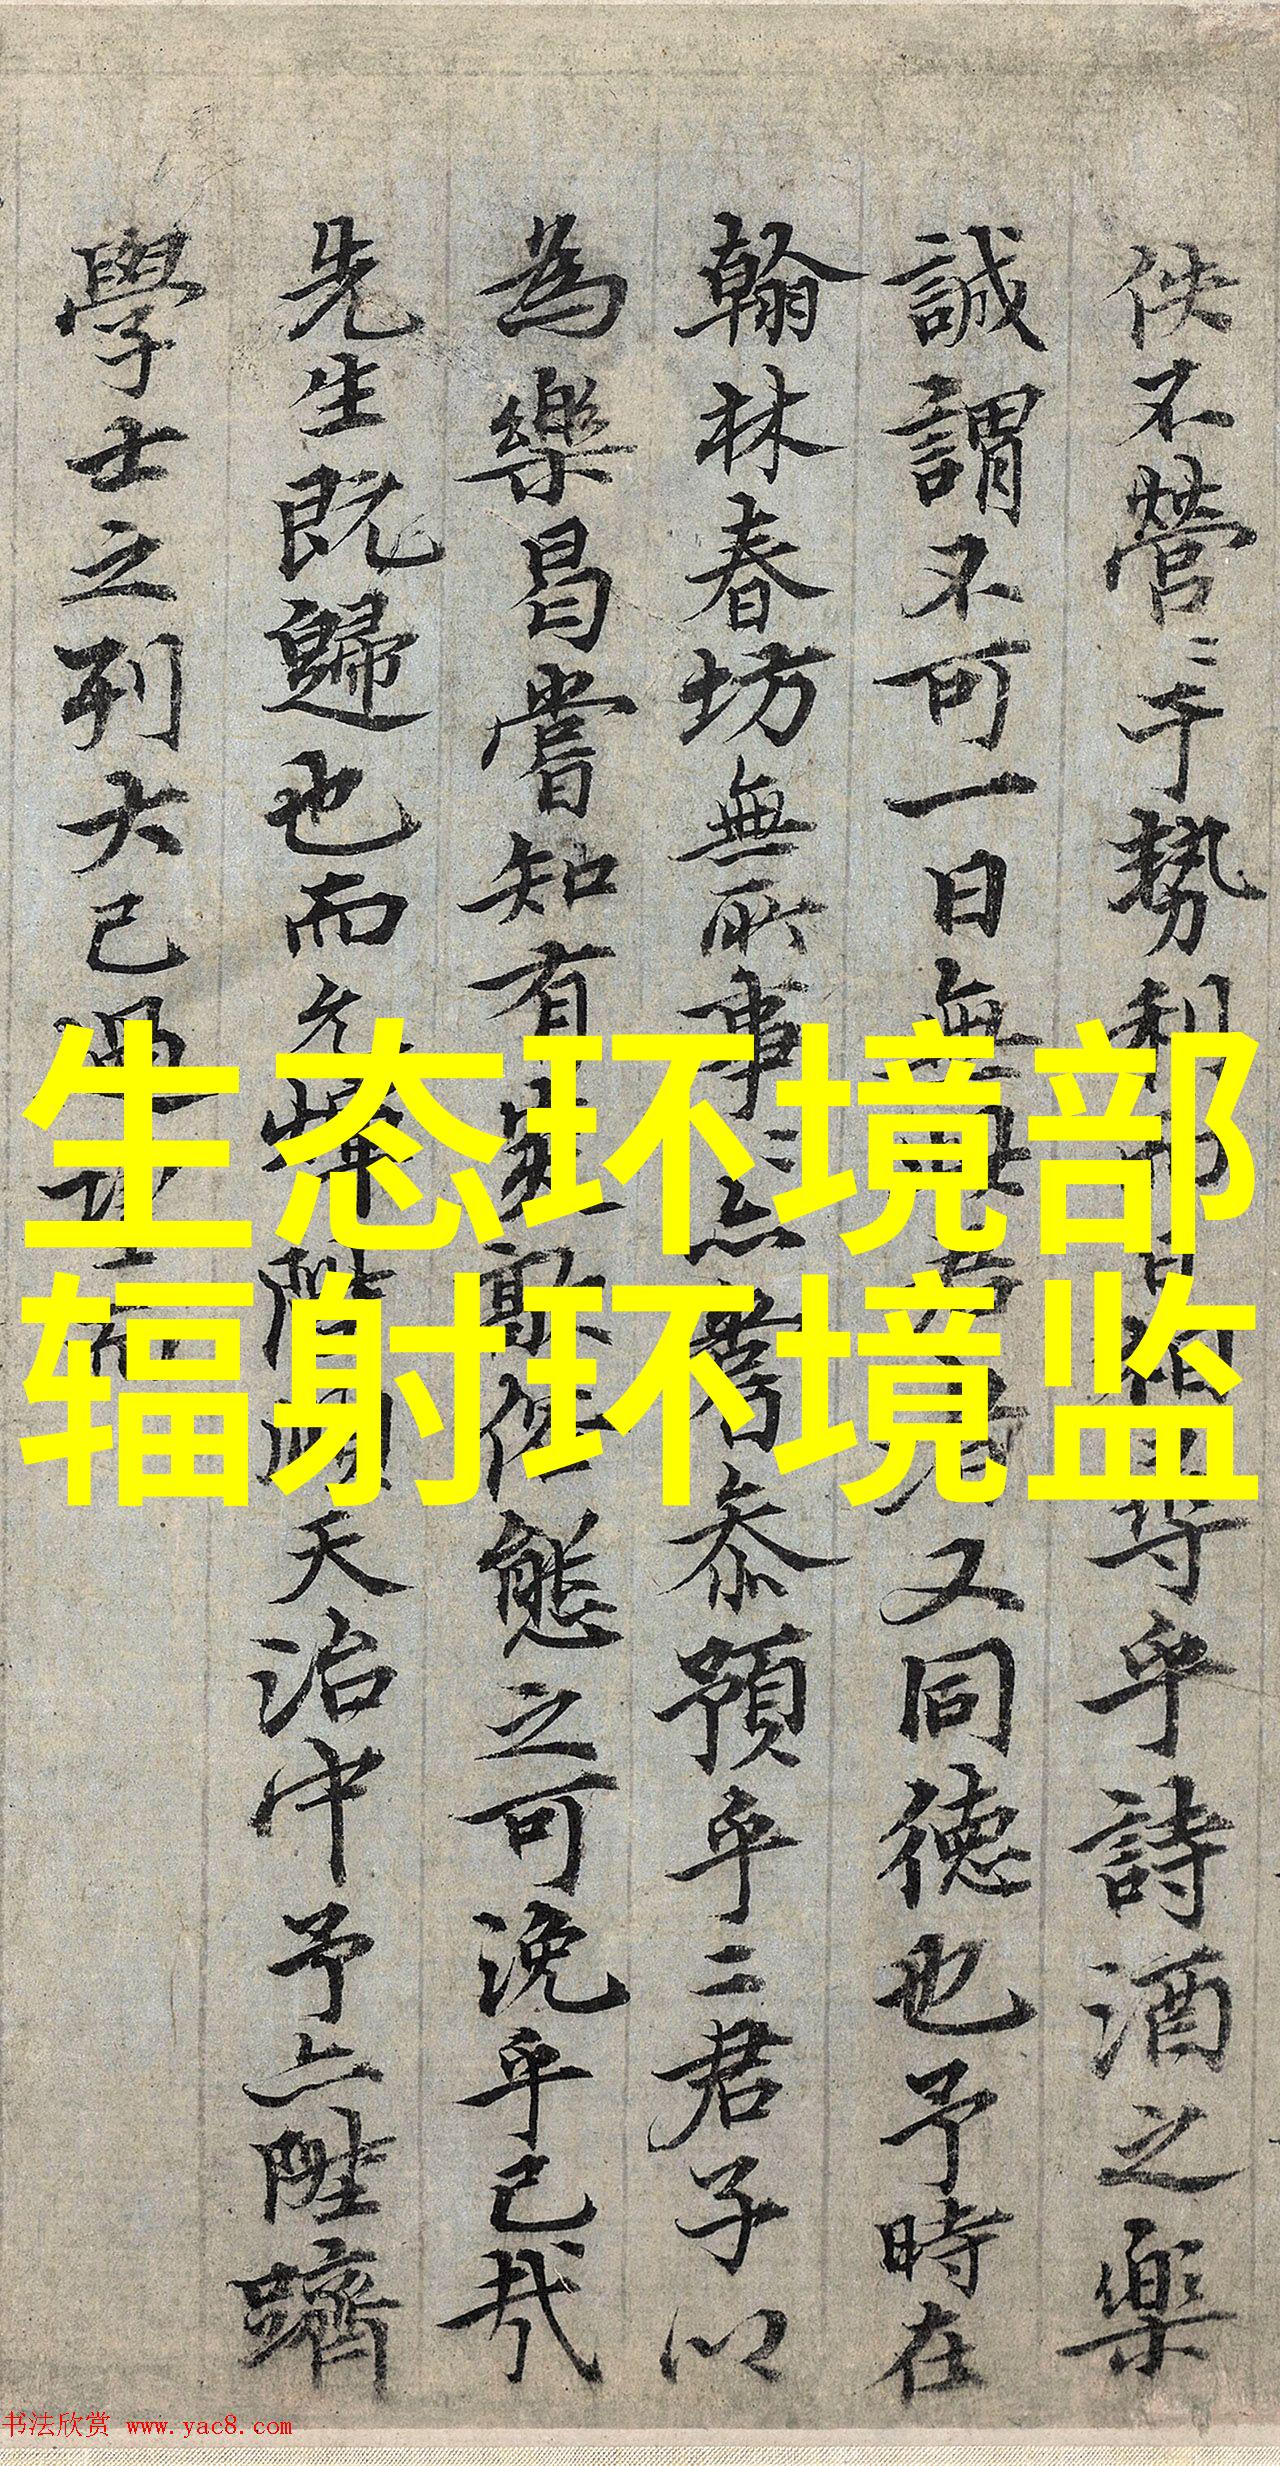 佚不營〻于勢利
尊乎詩酒之樂
誠謂不可一日無
又同德也予時在
翰林春坊無所事〻亦嘗參預乎二君子以
為樂曷嘗知有
態之可浼乎已哉
先生既歸也而
天治中予亦陞躋
學士之列大已過
生态环境部
辐射环境监
书法欣赏 www.yac8.com